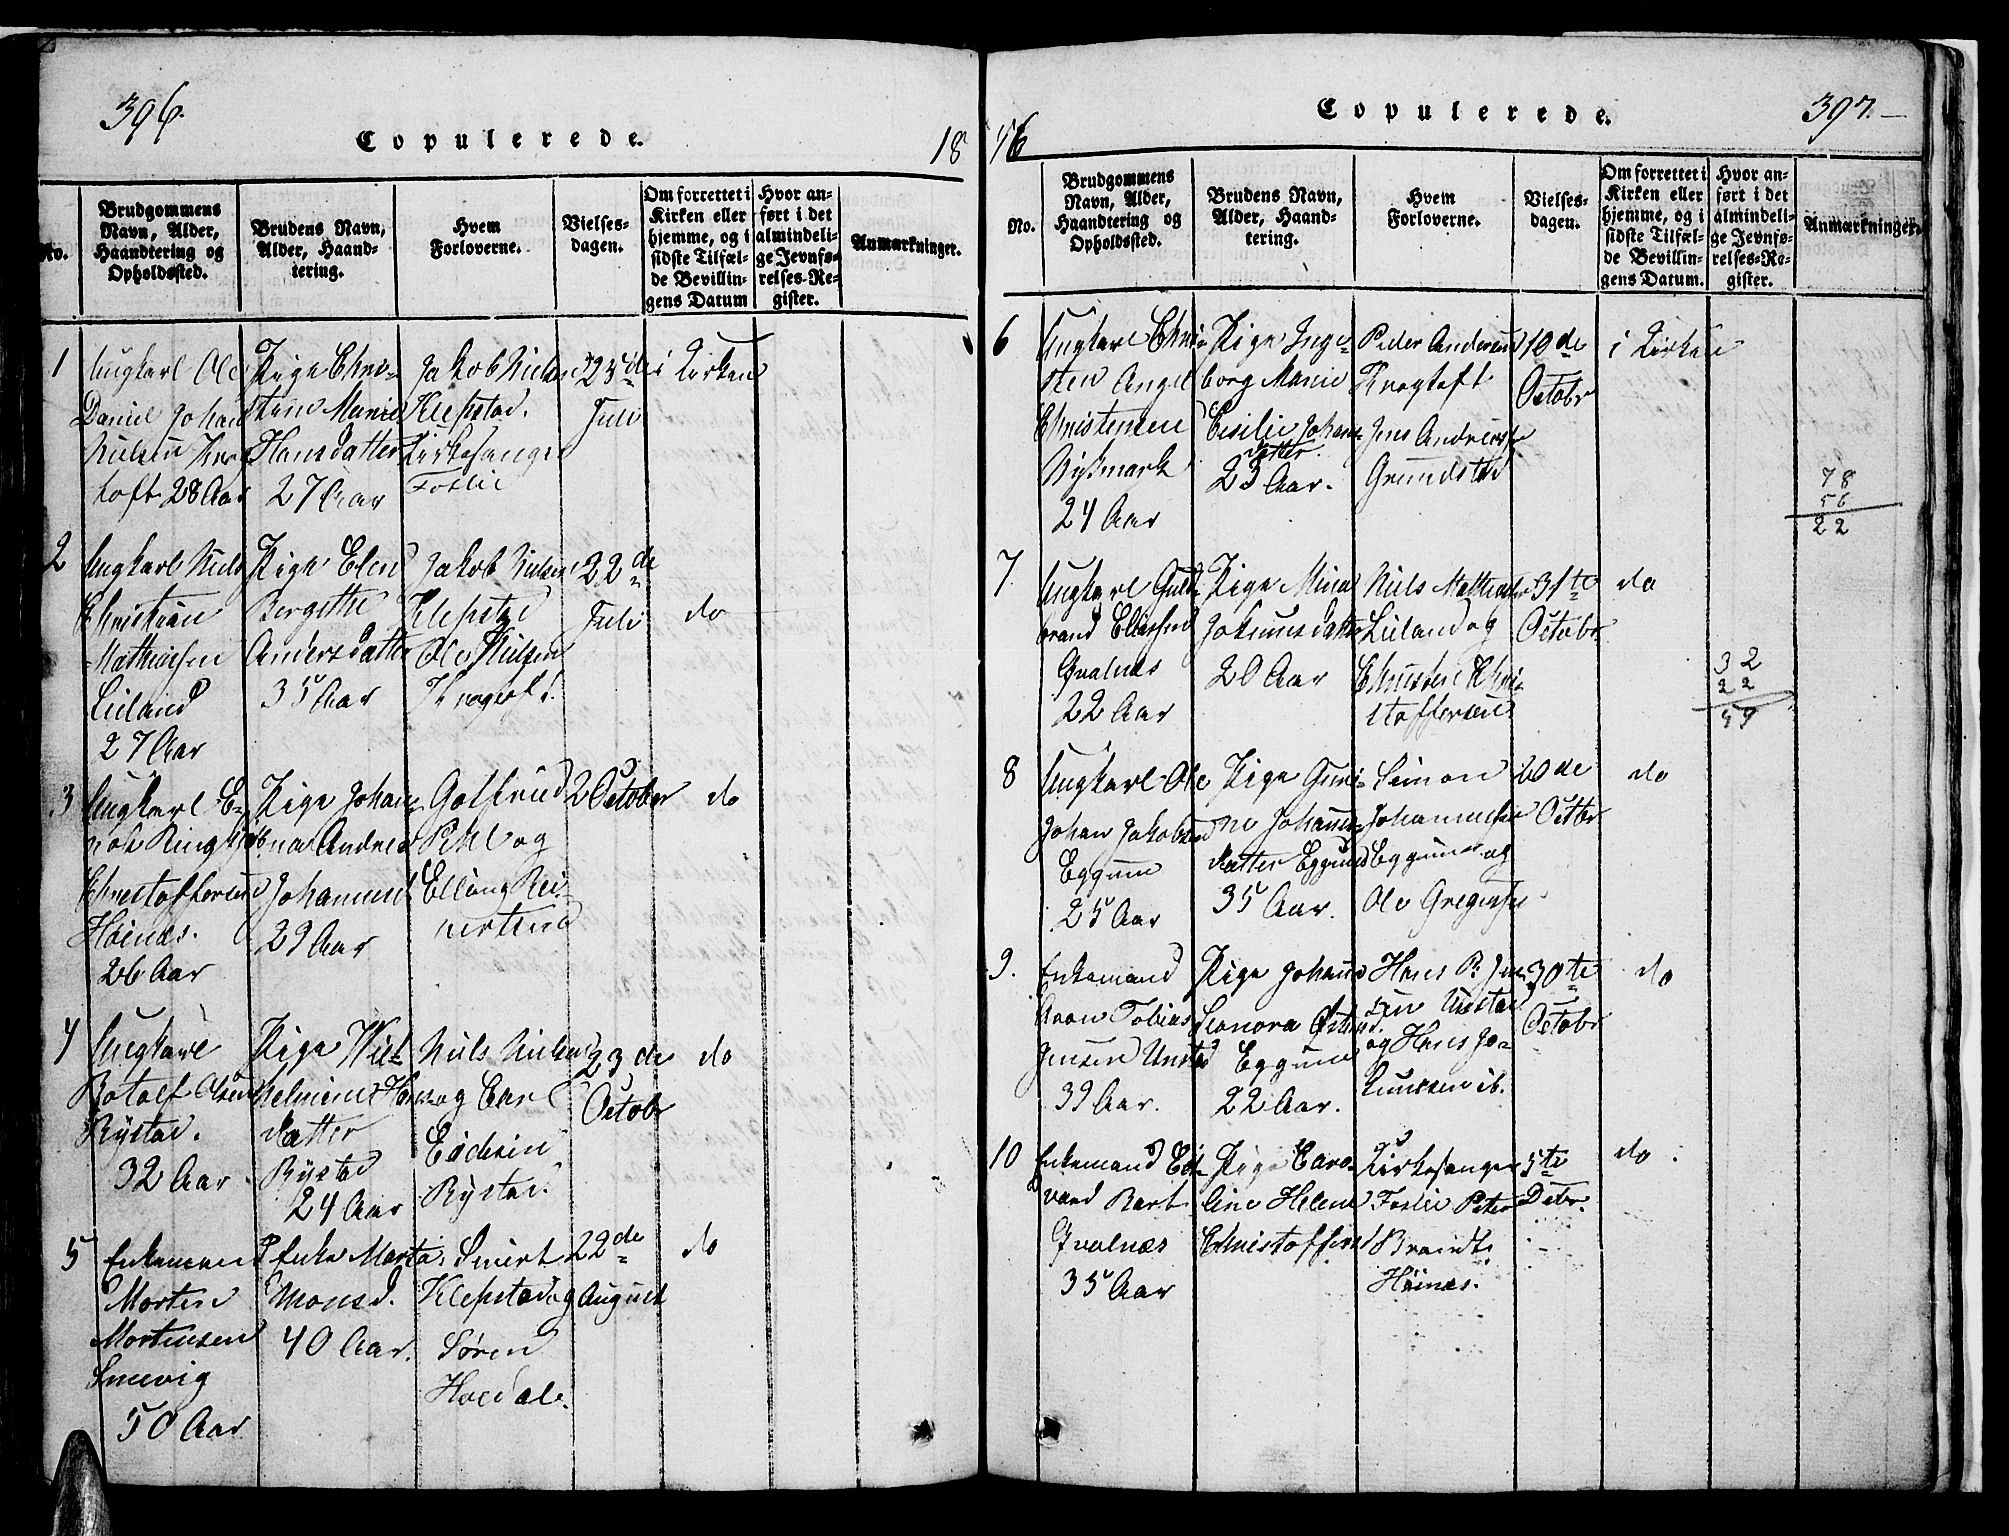 396.
Copulerede.
18
No.
Brudgommens Navn, Alder, Haandtering og Opholdssted.
Brudens Navn, Alder, Haandtering.
Hvem Forloverne.
Vielsesdagen.
Om forrettet i Kirken eller hjemme, og i sidste Tilfælde Bevillingens Datum
Hvor anført i det almindelige Jevnførelses-Register.
Anmærkninger.
1
Ungkarl Ole
Daniel Johan
Nielsen
toft 28 Aar
Pige Chri-
stine Marie
Hansdatter
27 Aar
Jakob Nielsen
Klepstad.
Kirkesanger
Foslie
25de
Juli
i Kirken
2
Ungkarl Niels
Christian
Mathiassen
Leiland
27 Aar
Pige Elen
Bergithe
Andersdatter
35 Aar
Jakob Nielsen
Klepstad
Ole Nielsen
Kragtoft.
22de
Juli
do
3
Ungkarl E-
nok Ring
Christoffersen
Høinæs.
26 Aar
Pige Johan-
na Andrea
Johannesd.
29 Aar
Gotfried
Pihl og
Elling Rei-
nertsen
2 October
do
4
Ungkarl
Botolf Olsen
Rystad.
32 Aar
Pige Wil-
helmine Hans-
datter
Rystad
24 Aar
Niels Nielsen
og Carl
Endesen
Rystad.
23de
Octobr
do
5
Enkemand
Morten
Mortensen
Smevig
50 Aar
Enke Marta
Monsd.
40 Aar.
Sivert
Klepstad og
Søren
Hordal.
22de
August
do
46
Copulerede.
397.
No.
Brudgommens Navn, Alder, Haandtering og Opholdssted.
Brudens Navn, Alder, Haandtering.
Hvem Forloverne.
Vielsesdagen.
Om forrettet i Kirken eller hjemme, og i sidste Tilfælde Bevillingens Datum.
Hvor anført i det almindelige Jevnførelses-Register.
Anmærkninger.
6
Ungkarl Chri-
sten Angel
Christensen
24 Aar
Pige Inge-
borg Marie
Cesilie Johans-
datter.
23 Aar.
Peder Andersen
Kragtoft
Jens Andreas
Grundstad
10de
Octobr
i Kirken
78
56
22
7
Ungkarl Guld-
brand Eliassen
Qvalnæs
22 Aar
Pige Mina
Johannesdatter
20 Aar
Niels Mathiassen
Leiland og
Christen Chri-
stoffersen
31te
Octobr
do
32
22
54
8
Ungkarl Ole
Johan Jakobsen
Eggum
25 Aar
Pige Guri-
ne Johannes-
datter Eggum
35 Aar.
Simon
Johannessen
Eggum og
Ole Gregersen
20de
Octbr
do
9.
Enkemand
Aron Tobias
Jensen Unstad
39 Aar.
Pige Johanna
Leonora
Eggum
22 Aar.
Hans P. Jen-
sen Unstad
og Hans Jo-
hannesen ib.
30te
Octobr
do
10
Enkemand Ed-
vard Bart
Qvalnæs
35 Aar
Pige Caro-
line Helene
Christoffersd
Kirkesanger
Foslie Peter
Brandt
Høinæs.
5te
Debr.
do.